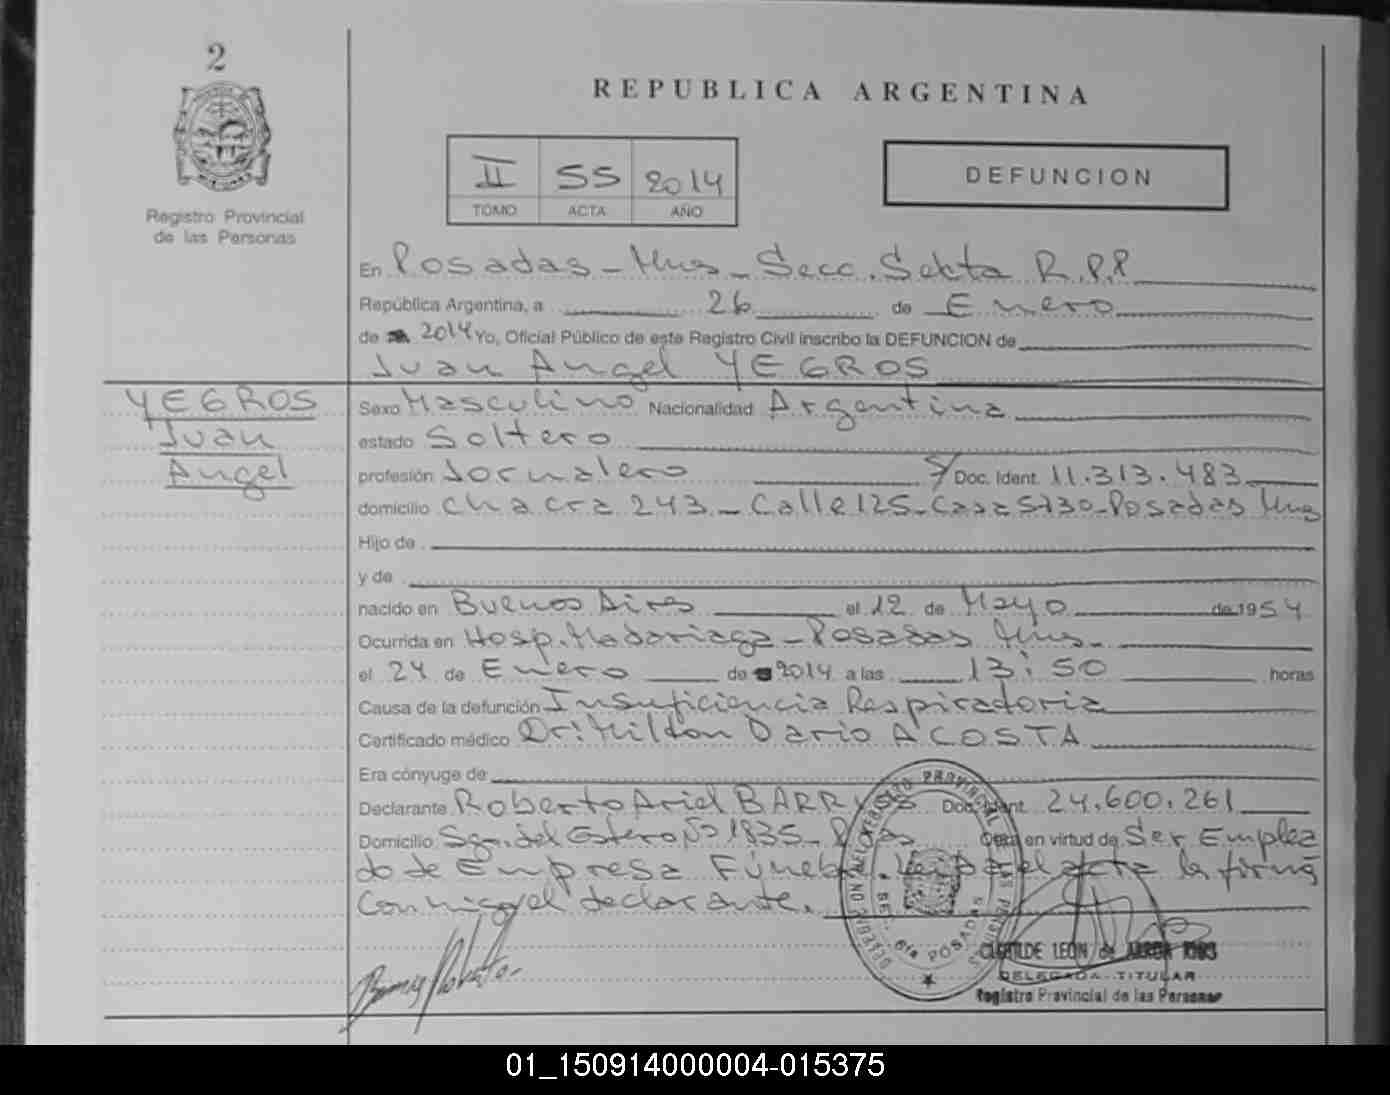 2
REPUBLICA ARGENTINA
II 55 2014
TOMO ACTA AÑO
DEFUNCION
Registro Provincial
de las Personas
En Posadas - Mnes - Secc. Sexta R.P.P
República Argentina, a 26 de Enero
de 2014 Yo, Oficial Público de este Registro Civil inscribo la DEFUNCION de
Juan Angel YEGROS
YEGROS
Juan
Angel
Sexo Masculino Nacionalidad Argentina
estado Soltero
profesión Jornalero S/ Doc. Ident. 11.313.483
domicilio Chacra 243 - Calle 125 - Casa 5730 - Posadas Mnes
Hijo de
y de
nacido en Buenos Aires el 12 de Mayo de 1954
Ocurrida en Hosp. Madariaga - Posadas Mnes.
el 24 de Enero de 2014 a las 13:50 horas
Causa de la defunción Insuficiencia Respiratoria
Certificado médico Dr. Milton Dario ACOSTA
Era cónyuge de
Declarante Roberto Ariel Doc. Ident. 24.600.261
Domicilio Sgo. del Estero Nº 1835 - Pdas Obra en virtud de Ser Emplea
do de Empresa Fúnebre. Leida el acta la firma
Conmigo el declarante.
REGISTRO PROVINCIAL DE LAS PERSONAS
DELEGACION
6ta POSADAS
CLOTILDE LEON de
DELEGADA TITULAR
Registro Provincial de las Personas
01_150914000004-015375